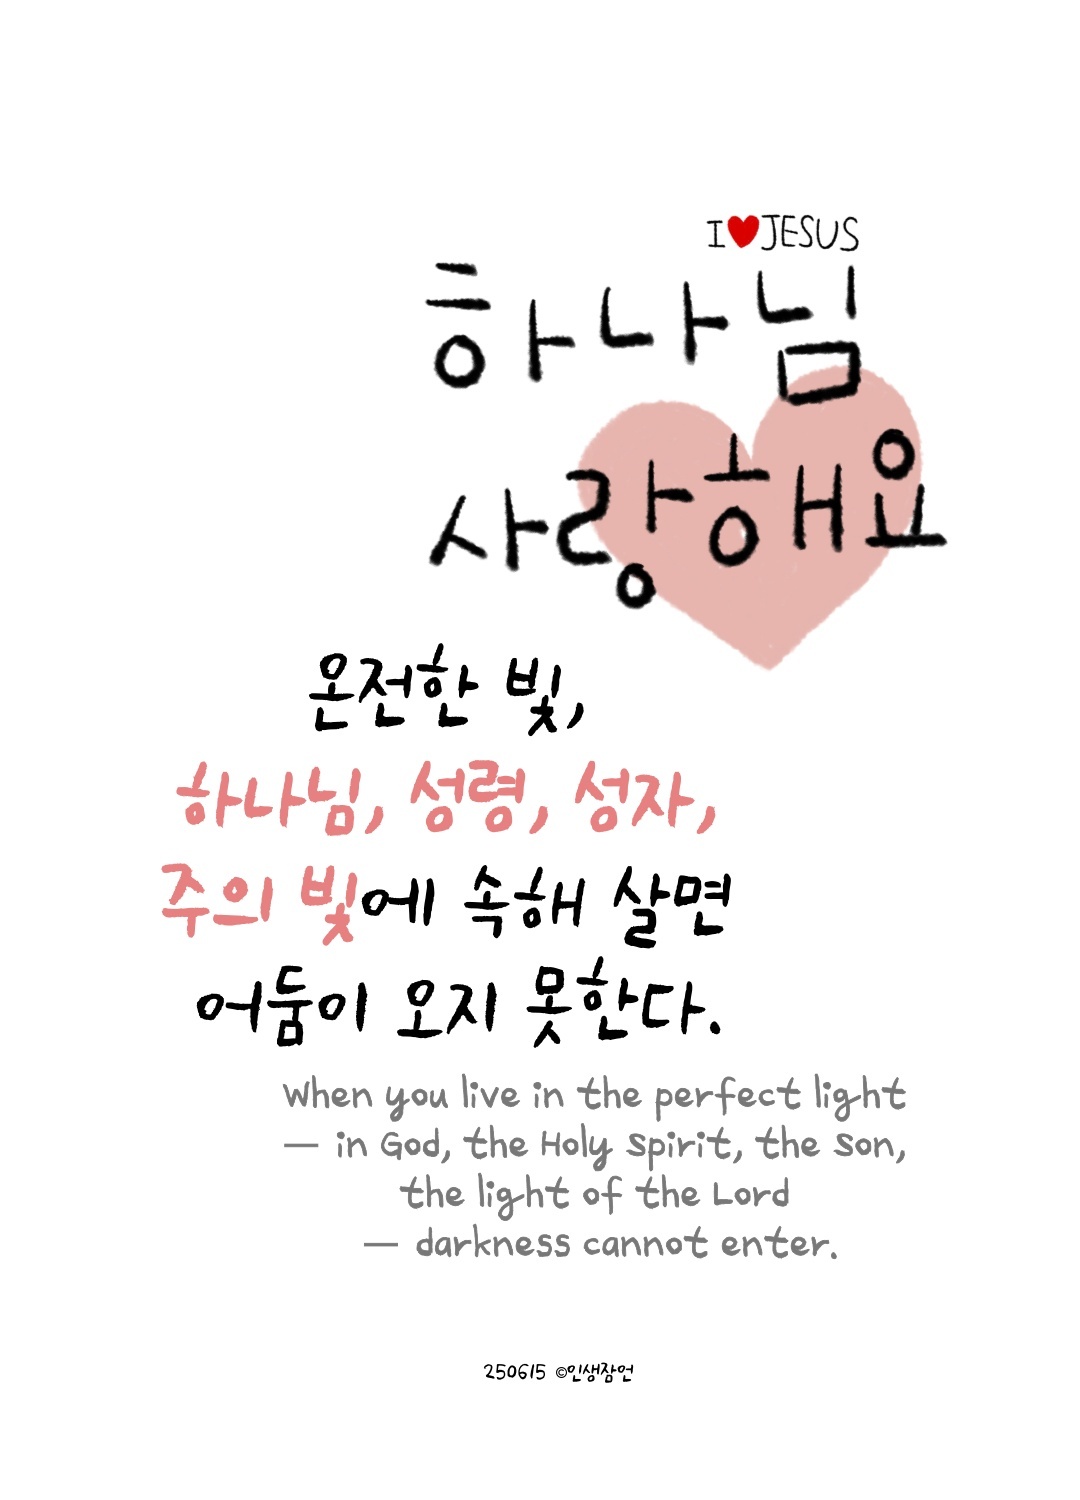 I♥JESUS
하나님
사랑해요
온전한 빛,
하나님, 성령, 성자,
주의 빛에 속해 살면
어둠이 오지 못한다.
When you live in the perfect light
— in God, the Holy Spirit, the Son,
the light of the Lord
— darkness cannot enter.
250615 ©인생잠언